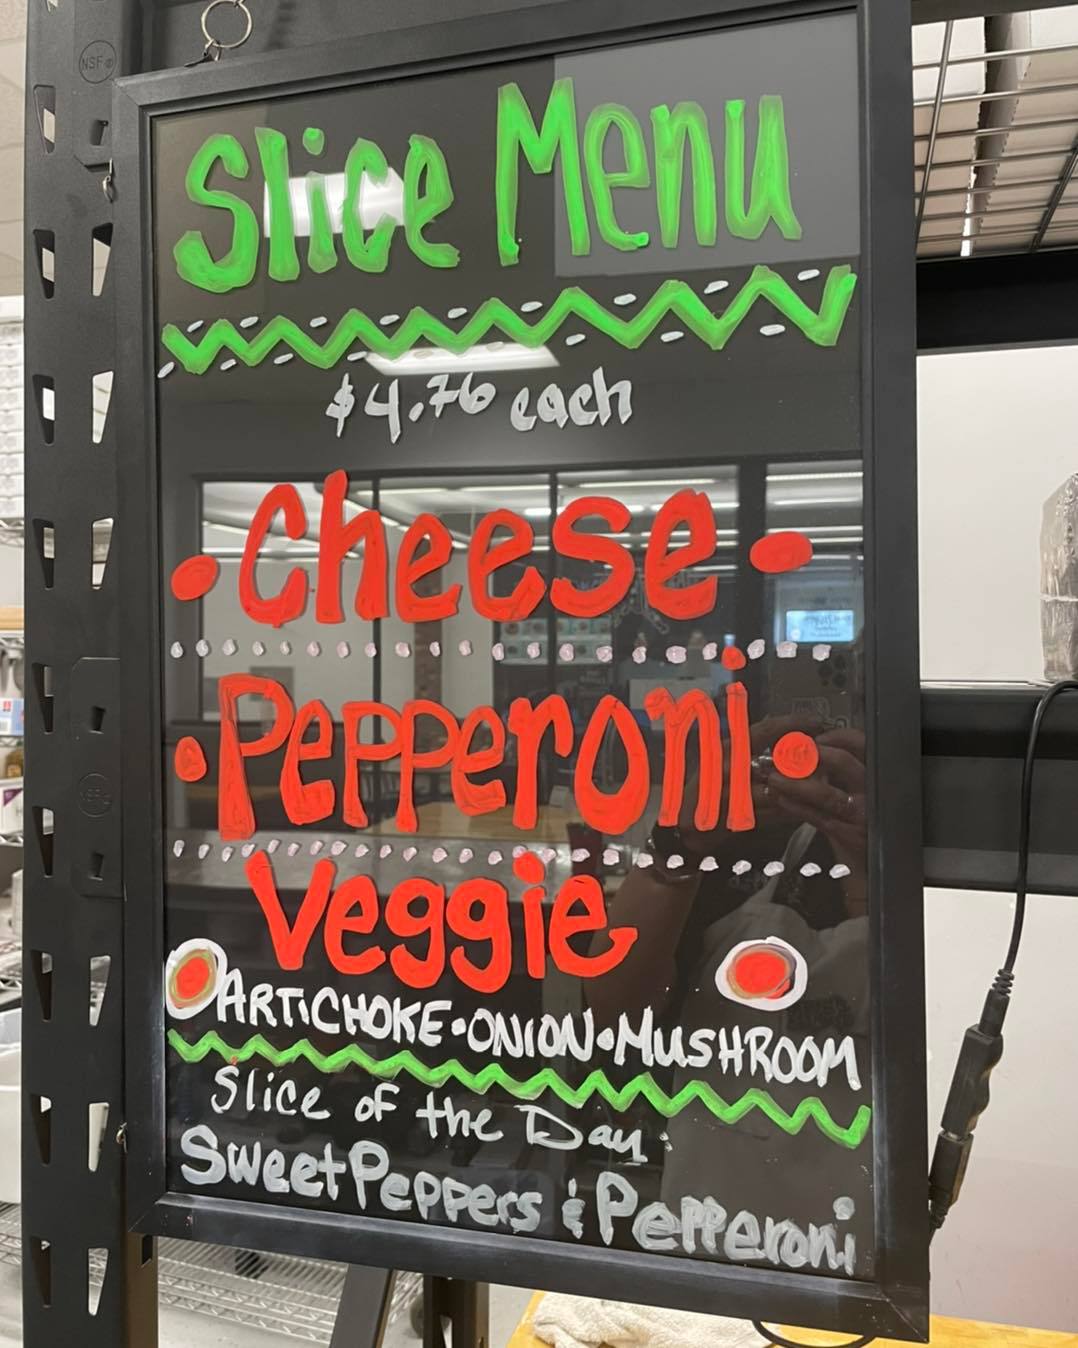 NSF
Slice Menu
$4.76 each
• Cheese •
• Pepperoni •
Veggie
ARTiCHOKE • ONiON • MUSHROOM
Slice of the Day:
Sweet Peppers & Pepperoni